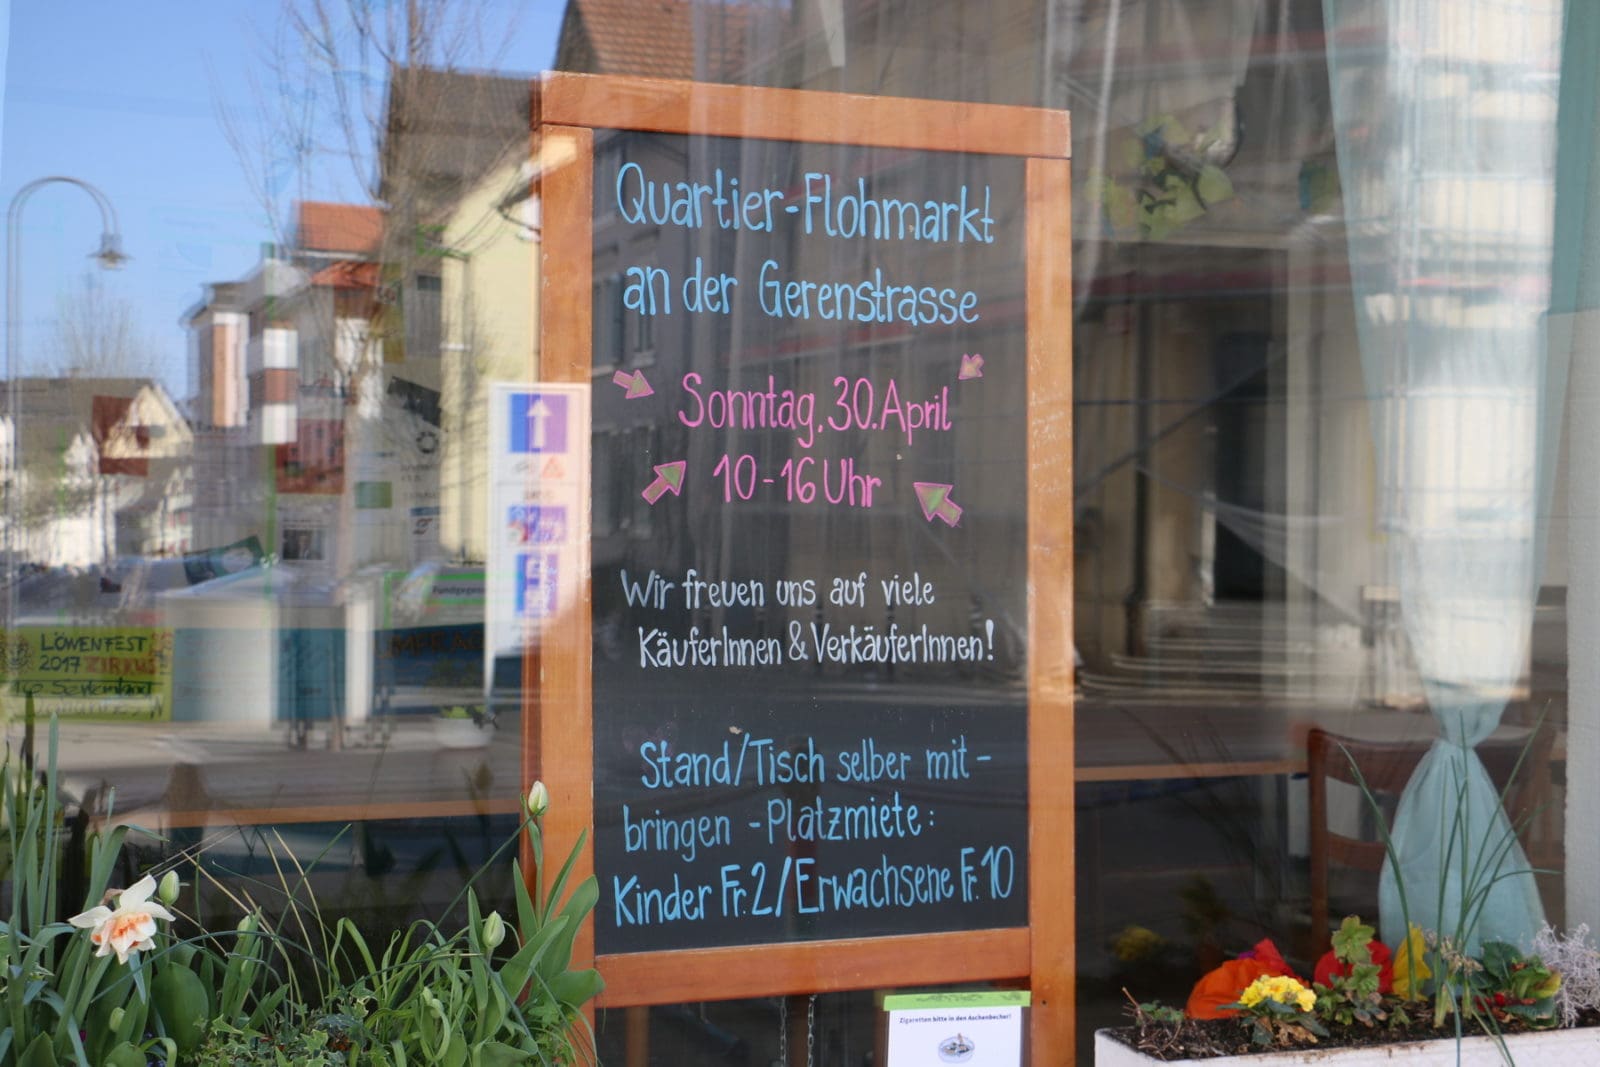 Quartier-Flohmarkt
an der Gerenstrasse
Sonntag, 30. April
10-16 Uhr
Wir freuen uns auf viele
KäuferInnen & VerkäuferInnen!
Stand/Tisch selber mit-
bringen - Platzmiete:
Kinder Fr. 2/Erwachsene Fr. 10
Zigaretten bitte in den Aschenbecher!
LÖWENFEST
2017 ZIRKUS
16. September